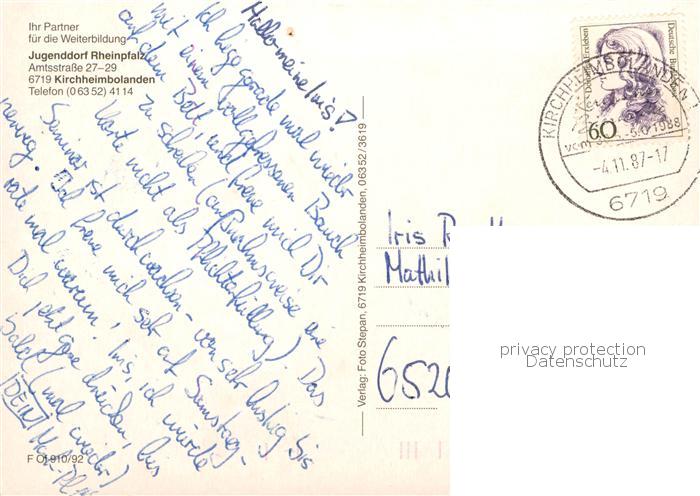 Ihr Partner
für die Weiterbildung
Jugenddorf Rheinpfalz
Amtsstraße 27–29
6719 Kirchheimbolanden
Telefon (0 63 52) 41 14
Hallo meine Iris!
Ich liege gerade mal wieder
mit einem vollgefressenen Bauch
auf dem Bett, und freue mich Dir
zu schreiben (ausnahmsweise eine
Karte nicht als Pflichterfüllung). Das
Seminar ist durchwachsen - von sehr lustig bis
nervig. Ich freue mich sehr auf Samstag -
rate mal warum! Iris, ich würde
Dich jetzt gerne drücken, bis
bald (mal wieder)
DEIN
F OI 910/92
Verlag: Foto Stepan, 6719 Kirchheimbolanden, 0 63 52 / 3619
Deutsche Bundespost
Dorothea Erxleben
60
KIRCHHEIMBOLANDEN 1
-4.11.87-17
6719
Iris
Mathil
6520
privacy protection
Datenschutz